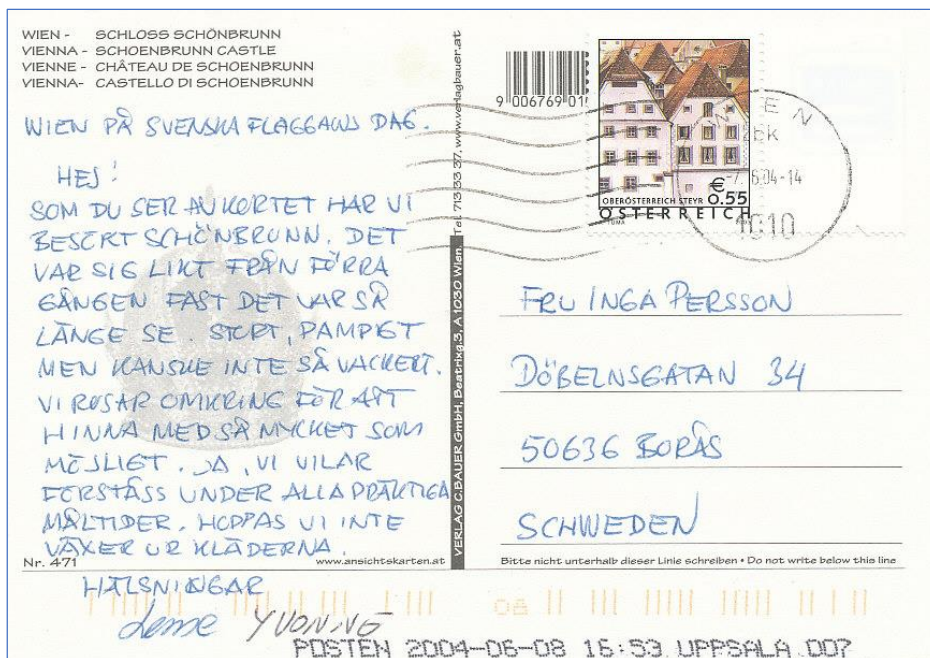 WIEN - SCHLOSS SCHÖNBRUNN
VIENNA - SCHOENBRUNN CASTLE
VIENNE - CHÂTEAU DE SCHOENBRUNN
VIENNA- CASTELLO DI SCHOENBRUNN
WIEN PÅ SVENSKA FLAGGANS DAG.
HEJ!
SOM DU SER AV KORTET HAR VI
BESÖKT SCHÖNBRUNN. DET
VAR SIG LIKT FRÅN FÖRRA
GÅNGEN FAST DET VAR SÅ
LÄNGE SE. STORT, PAMPIGT
MEN KANSKE INTE SÅ VACKERT.
VI RUSAR OMKRING FÖR ATT
HINNA MED SÅ MYCKET SOM
MÖJLIGT. JA, VI VILAR
FÖRSTÅSS UNDER ALLA PRÄKTIGA
MÅLTIDER. HOPPAS VI INTE
VÄXER UR KLÄDERNA.
HÄLSNINGAR
YVONNE
Nr. 471
www.ansichtskarten.at
VERLAG C.BAUER GmbH, Beatrixg.3, A 1030 Wien, Tel. 713 33 37, www.verlagbauer.at
9 006769 01
OBERÖSTERREICH STEYR
€ 0.55
ÖSTERREICH
WIEN
-7.6.04-14
1010
FRU INGA PERSSON
DÖBELNSGATAN 34
50636 BORÅS
SCHWEDEN
Bitte nicht unterhalb dieser Linie schreiben • Do not write below this line
POSTEN 2004-06-08 16:53 UPPSALA 007